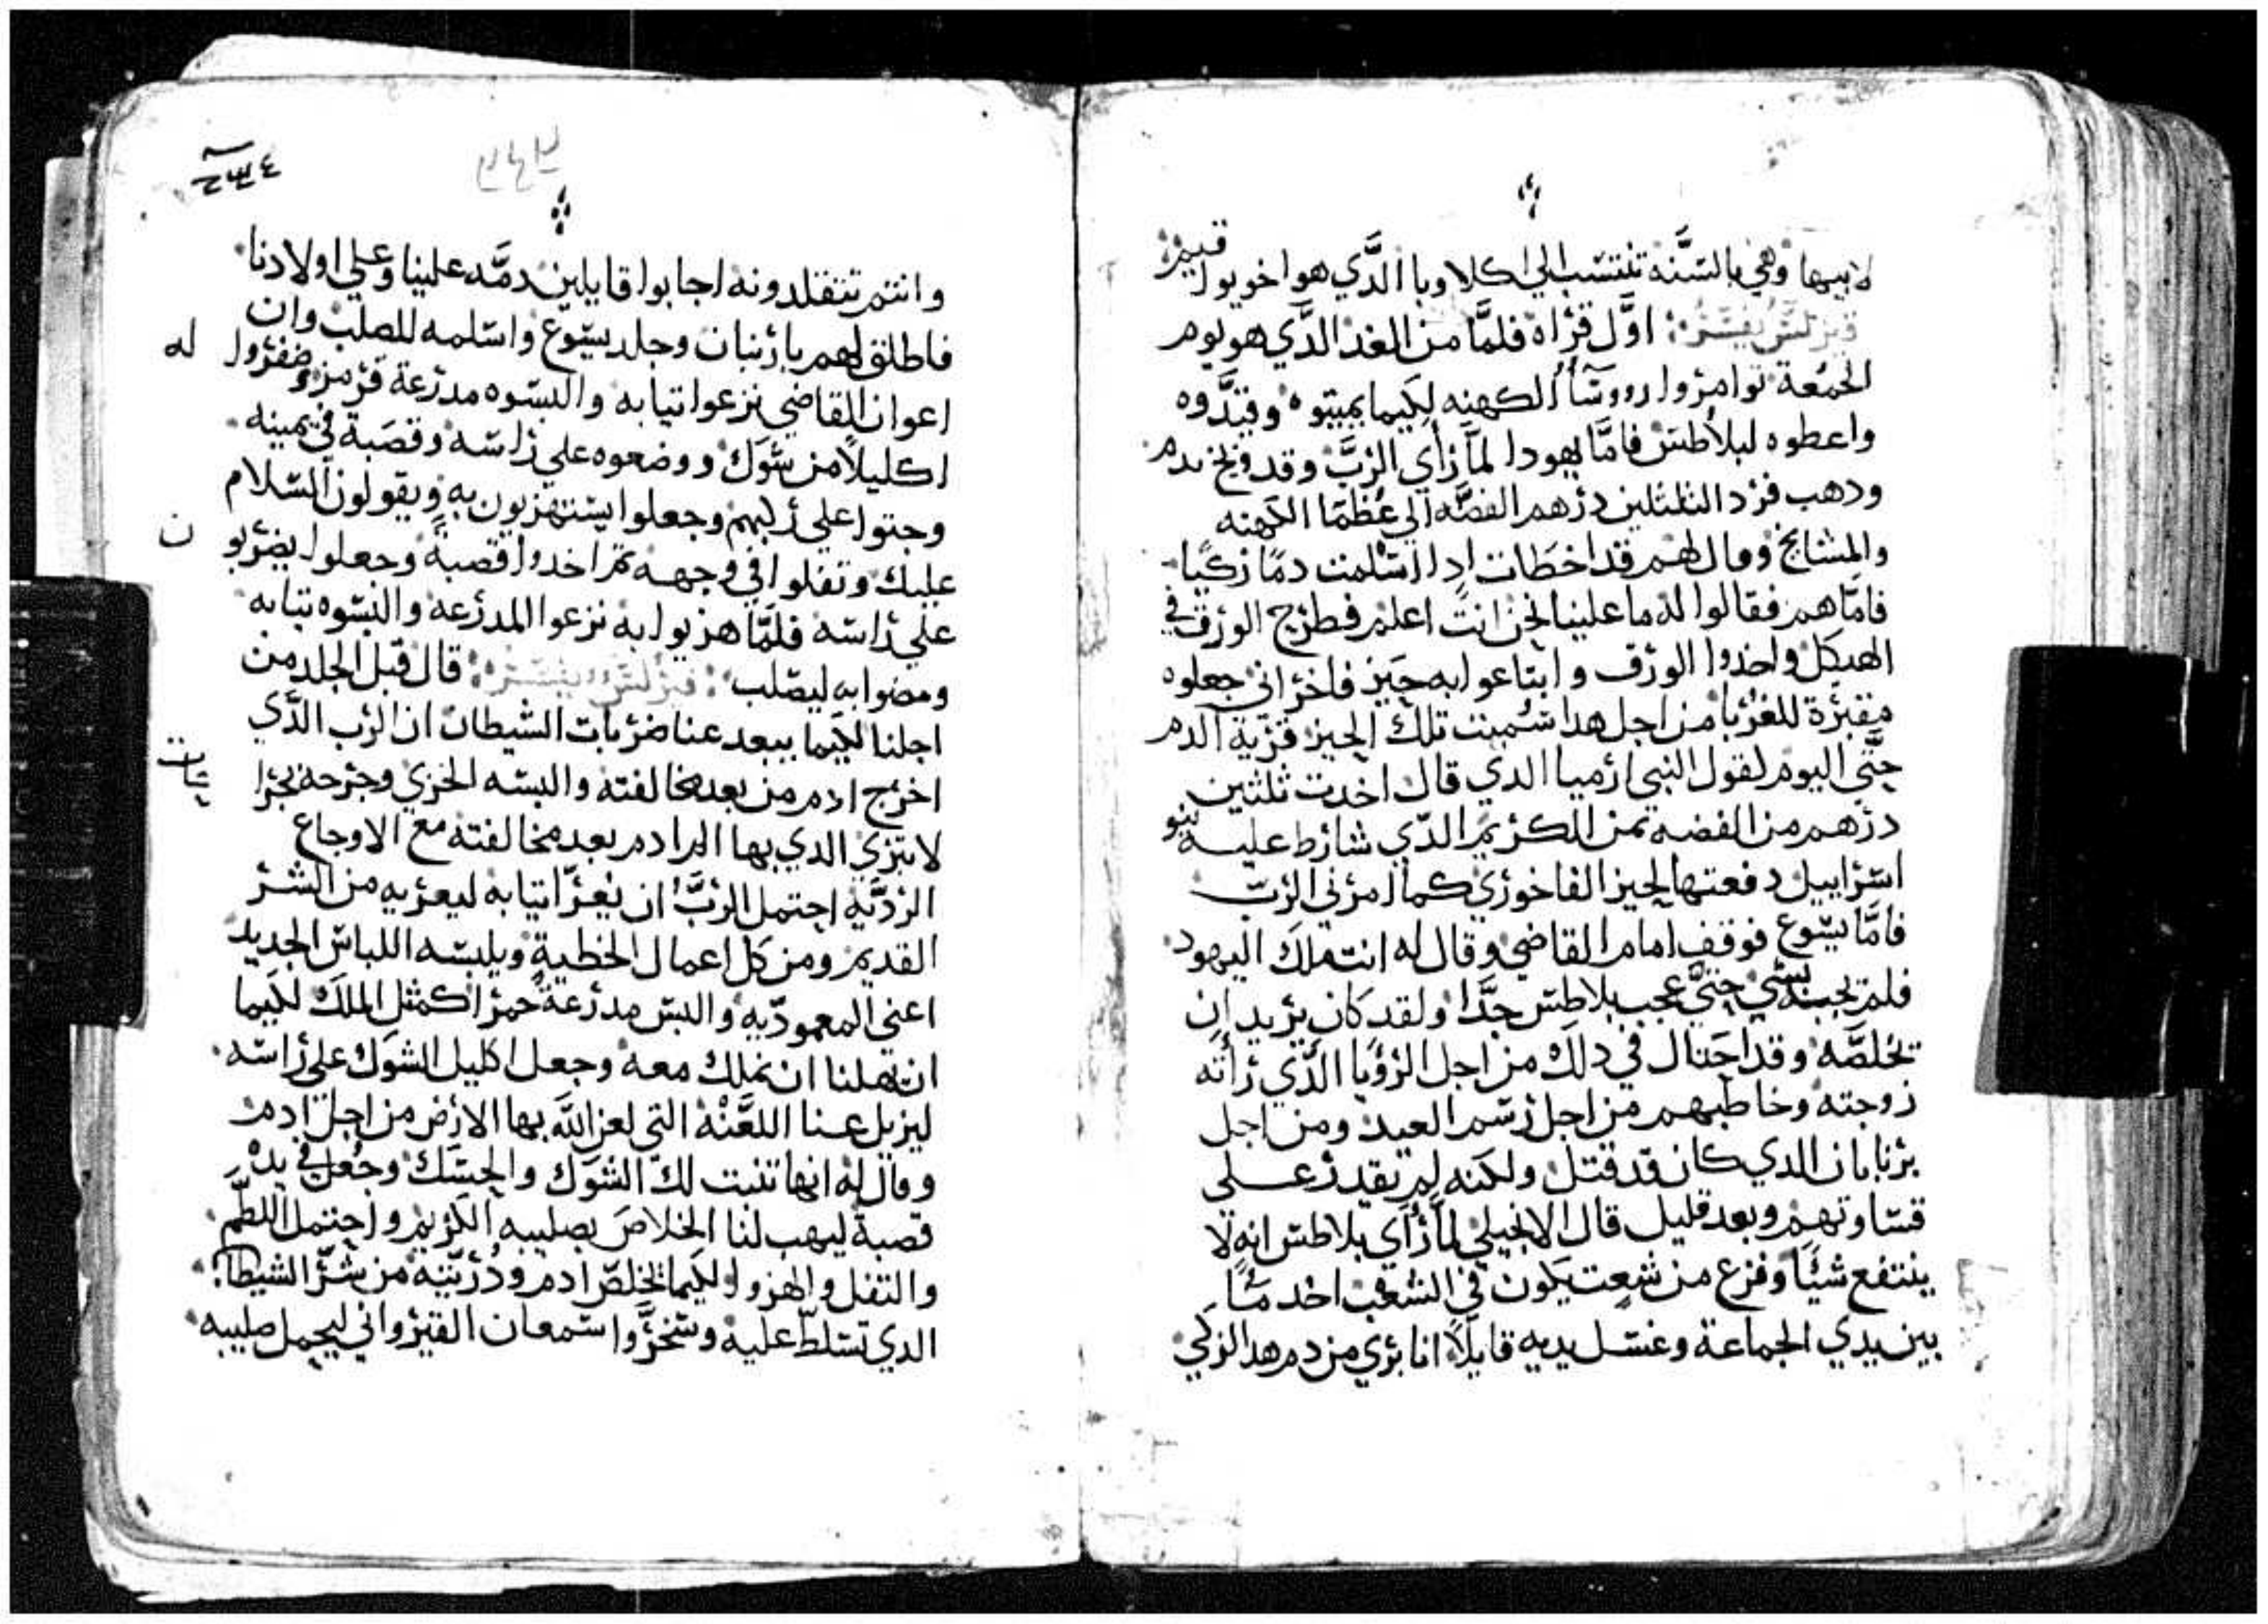 لابيها وهي بالسنه تنتسب الي اكلاوبا الدَّي هوا خو يوا
قيم
اوَّل قراه فلمَّا من الغد الدَّي هو يوم
الجمُعة توامروا رووسآء الكهنه لكَيما يميتوه وقيَّدوه
واعطوه لبلاُطس فامَّا يهودا لمآ رأي الربَّ وقد ندم
ودهب فرد الثلثلين درهم الفضَّه الي عُظمَا الكهنه
والمشايخ وقال لهم قد اخطَات ادا اسْلمت دمًا زكيًا
فامَّاهم فقالوا له ما علينا نحن انتَ اعلم فطرح الورق في
الهيكل واخدوا الورق وابتاعوا به حيز فاخراني جعلوه
مقبرَة للغربا من اجل هدا سُميت تلك الحيز قرية الدم
حتَّي اليوم لقول النبي ارميا الدي قال اخدت ثلثين
درهم من الفضه تمن الكريم الدَّي شارط عليه بنو
اسراييل دفعتها لحيز الفاخوري كما امرني الربّ
فامَّا يسوع فوقف امام القاضي وقال له انت ملك اليهود
فلم يجبه بشي حتيَّ عجب بلاطس جدَّا ولقد كان يريد ان
يخلصَّه وقد احتال في دلك من اجل الرؤيا الدَّي رأته
زوجته وخاطبهم من اجل رسم العيد ومن اجل
برنابان الدي كان قد قتل ولكنه لم يقدر علي
قساوتهم وبعد قليل قال الانجيلي لمآ رأي بلاطس انه لا
ينتفع شيًا وفزع من شعت يكون في الشعب اخد مآًا
بين يدي الجماعة وغسل يديه قايلاً انا بري من دم هدا الزكي
وانتم تتقلدونه اجابوا قايلين دمَّه علينا وعلي اولادنا
فاطلق لهم بارنبان وجلد يسوع واسلمه للصلب وان
اعوان القاضي نزعوا تيابه والبسوه مدرعة قرمز وضفروا له
اكليلاً من شوك ووضعوه علي راسه وقصَبة في يمينه
وجتوا علي ركبهم وجعلوا يستهزيون به ويقولون السلام
عليك وتفلوا في وجهه تم اخدوا قصبةً وجعلوا يضربون
علي راسه فلمَّا هزيوا به نزعوا المدرعه والبسوه تيابه
ومضوا به ليصلب قال قبل الجلد من
اجلنا لكيما يبعد عنا ضربات الشيطان ان الرب الدَّي
اخرج ادم من بعد مخالفته والبسه الخزي وجرحه بجراحات
لا تبري الدي بها البرا دم بعد مخالفته مع الاوجاع
الرديَّة احتمل الربَّ ان يُعرَّا تيابه ليعريه من الشر
القديم ومن كل اعمال الخطية ويلبسه اللباس الجديد
اعني المعموديّه والبس مدرعة حمرا كمثل الملك لكيما
ان يهلنا ان نملك معه وجعل اكليل الشوك علي راسه
ليزيل عنا اللعَنْة التي لعن اللَّه بها الارض من اجل ادم
وقال له انها تنبت لك الشوك والحسك وجُعل في يده
قصبة ليهب لنا الخلاص بصليبه الكريم واحتمل اللطم
والتفل والهزو لكيما يخلص ادم ودُريَّته من شرَّ الشيطان
الدي تسلطّ عليه وسخرَّوا سمعان القيرواني ليحمل صليبه